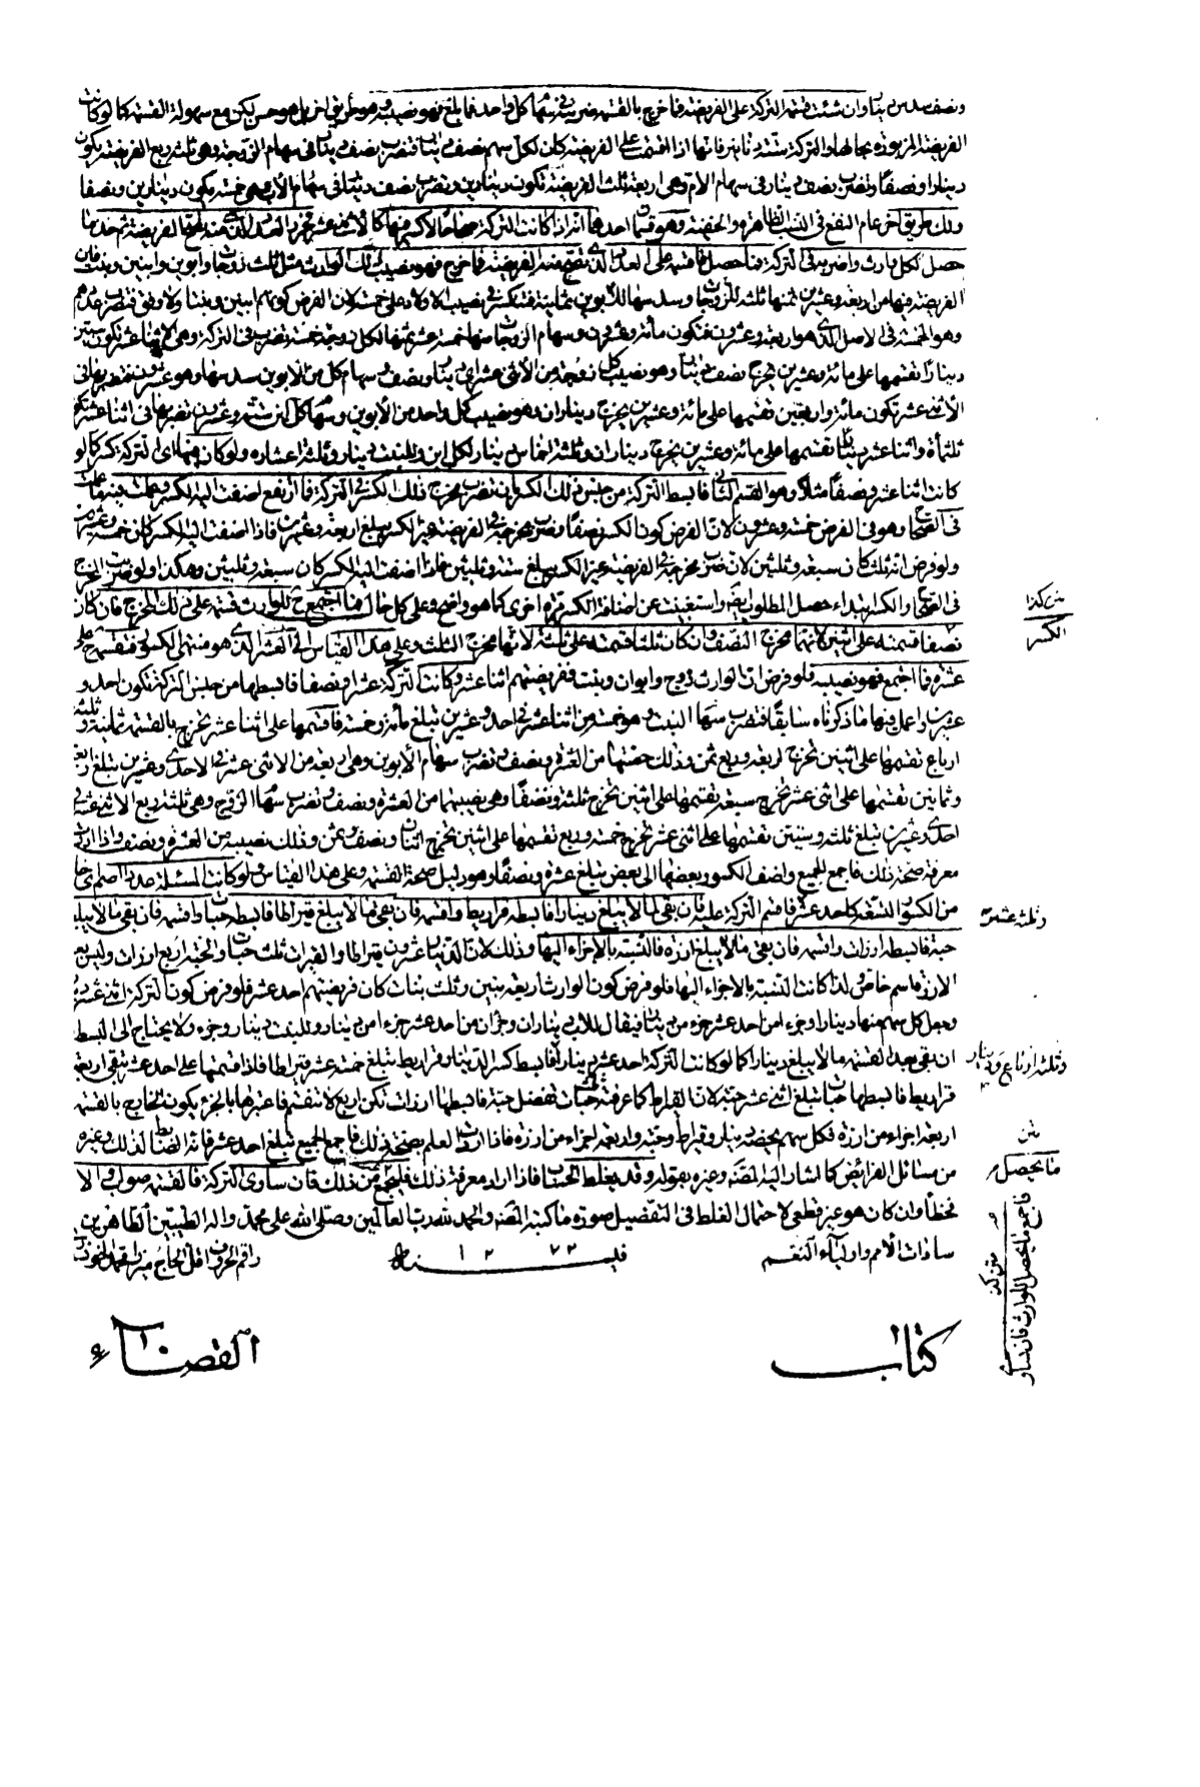 ونصف سدس دينار وان شئت قسمة التركة على الفريضة فما خرج بالقسمة ضربته في سهام كل واحد فما بلغ فهو نصيبه وهو طريق اخر بل هو حسن لكن مع سهولة القسمة كما لو كانت
الفريضة المزبورة بحالها والتركة ستة دنانير فانها اذا قسمت على الفريضة كان لكل سهم نصف دينار فتضرب نصف دينار في سهام الزوجة وهي ثلثة ربع الفريضة يكون
دينارا ونصفا وتضرب نصف دينار في سهام الام وهي اربعة ثلث الفريضة تكون دينارين وتضرب نصف دينار في سهام الأب وهي خمسة يكون دينارين ونصفا
ولك طريق اخر عام النفع في النسب الظاهرة والخفية وهو قسمان احدهما انه اذا كانت التركة صحاحا لا كسر فيها كالاثنى عشر فحرر العدد الذي منه تصح الفريضة ثم خذ ما
حصل لكل وارث واضربه في التركة فما حصل فاقسمه على العدد الذي تصح منه الفريضة فما خرج فهو نصيب ذلك الوارث مثل ثلث زوجات وابوين وابنين وبنت فان
الفريضة فيها من اربعة وعشرين ثمنها ثلثة للزوجات وسدسها للأبوين ثمانية فتنكسر في نصيب الاولاد على خمسة لان الفرض كونهم ابنين وبنتا ولا وفق فتضرب عددهم
وهو الخمسة في الاصل الذي هو اربعة وعشرون فتكون مأة وعشرون وسهام الزوجات منها خمسة عشر ثمنها لكل زوجة خمسة تضرب في التركة وهي الاثنا عشر تكون ستين
دينارا تقسمها على مائة وعشرين يخرج نصف دينار وهو نصيب كل زوجة من الاثنى عشر اي دينار ونصف وسهام كل من الابوين سدسها وهو عشرون فتضربها في
الأثنى عشر تكون مائة واربعين تقسمها على مائة وعشرين يخرج ديناران وهو نصيب كل واحد من الأبوين وسهام كل ابن ستة وعشرون تضربها في اثنا عشر تكون
ثلثمأة واثنا عشر دينارا تقسمها على مائة وعشرين يخرج ديناران وثلثة اخماس دينار لكل ابن وللبنت دينار وثلثة اعشاره ولو كان فيها اي التركة كسر كما لو
كانت اثنا عشر ونصفا مثلا وهو القسم الثاني فابسط التركة من جنس ذلك الكسر بان تضرب مخرج ذلك الكسر في التركة فما ارتفع اضفت اليه الكسر وعملت فيه ما عملت
في الصحاح وهو في الفرض خمسة وعشرون لان الفرض كون الكسر نصفا وضرب مخرجه في الفريضة غير الكسر يبلغ اربعة وعشرين فاذا اضفت اليه الكسر كان خمسة وعشرين
ولو فرض انه ثلث كان سبعة وثلثين لان ضرب مخرجه في الفريضة غير الكسر يبلغ ستة وثلثين فاذا اضفت اليه الكسر كان سبعة وثلثين وهكذا ولو ضربت المخرج
في الصحاح والكسر ابتداء حصل المطلوب ايضا واستغنيت عن اضافة الكسر مرة اخرى كما هو واضح وعلى كل حال فما اجتمع للوارث قسمته على ذلك المخرج فان كان
نصفا قسمته على اثنين لانهما مخرج النصف وان كان ثلثا قسمته على ثلثة لانها مخرج الثلث وعلى هذا القياس الى العشر الذي هو منتهى الكسور فتقسم على
عشرة فما اجتمع فهو نصيبه فلو فرض ان الوارث زوج وابوان وبنت ففريضتهم اثنا عشر وكانت التركة عشرا ونصفا فابسطها من جنس التركة تكون احد و
عشرين واعمل فيها ما ذكرناه سابقا فتضرب سهام البنت وهو خمسة من اثنا عشر في احد وعشرين تبلغ مأة وخمسة فاقسمها على اثنا عشر تخرج بالقسمة ثمانية وثلثة
ارباع تقسمها على اثنين تخرج اربعة وربع ثمن وذلك حصتها من العشرة ونصف وتضرب سهام الأبوين وهي اربعة من الاثنى عشر في الاحدى وعشرين تبلغ اربعة
وثمانين تقسمها على اثنى عشر تخرج سبعة تقسمها على اثنين تخرج ثلثة ونصفا وهي نصيبهما من العشرة ونصف وتضرب سهام الزوج وهي ثلثة ربع الاثنى عشر في
احدى وعشرين تبلغ ثلثة وستين تقسمها على اثنى عشر تخرج خمسة وربع تقسمها على اثنين تخرج اثنان ونصف وثمن وذلك نصيبه من العشرة ونصف واذا اردت
معرفة صحة ذلك فاجمع الجميع واضف الكسور بعضها الى بعض تبلغ عشرة ونصفا وهو دليل صحة القسمة وعلى هذا القياس ولو كانت المسئلة عددا اصم اي خاليا
من الكسور التسعة كاحد عشر فاقسم التركة عليه فان بقى ما لا يبلغ دينارا فابسطه قراريط واقسمه فان بقى ما لا يبلغ قيراطا فابسطه حبات واقسمه فان بقى ما لا يبلغ
حبة فابسطه ارزات واقسمه فان بقى ما لا يبلغ ارزة فانسبه بالاجزاء اليها وذلك لان الدينار عشرون قيراطا والقيراط ثلث حبات والحبة اربع ارزات وليس بعد
الارزة اسم خاص ولذا كانت النسبة بالاجزاء اليها فلو فرض كون الوارث اربعة بنين وثلث بنات كان فريضتهم احد عشر فلو فرض كون التركة اثنى عشر دينارا
وجعل كل سهم منها دينارا وجزء من احد عشر جزء من دينار فيقال للابن ديناران وجزءان من احد عشر جزء من دينار وللبنت دينار وجزء ولا يحتاج الى البسط
ان بقى بعد القسمة ما لا يبلغ دينارا كما لو كانت التركة احد عشر دينارا فابسط كسر الدينار قراريط تبلغ خمسة عشر قيراطا فاذا قسمتها على احد عشر تبقى اربعة
قراريط فابسطها حبات تبلغ اثنى عشر حبة لان القيراط كما عرفت ثلث حبات تفضل حبة فابسطها ارزات تكن اربع لا تنقسم فاعتبرها بالجزء يكون الخارج بالقسمة
اربعة اجزاء من ارزة فكل سهم يخصه دينار وقيراط وحبة واربعة اجزاء من ارزة فاذا اردت العلم بصحة ذلك فاجمع الجميع تبلغ احد عشر فانه الضابط لذلك وغيره
من مسائل الفرائض كما اشار اليه المصنف وغيره بقوله وقد يغلط الحاسب فاذا اراد معرفة ذلك فليجمع ذلك فان ساوى التركة فالقسمة صواب والا
فخطأ وان كان هو غير قطعي لاحتمال الغلط في التفصيل صورة ما كتبه المصنف والحمد لله رب العالمين وصلى الله على محمد واله الطيبين الطاهرين
سادات الأمم واولياء النعم
فى سنة ١٢٧٢
راقم الحروف اقل الحاج ميرزا
كتاب القضاء
متن كذا
الكسر
وثلثة عشر
وثلثة ارباع دينار
متن
ما يحصل
فاجمع ما يحصل للوارث فان ساوى
متن كذ